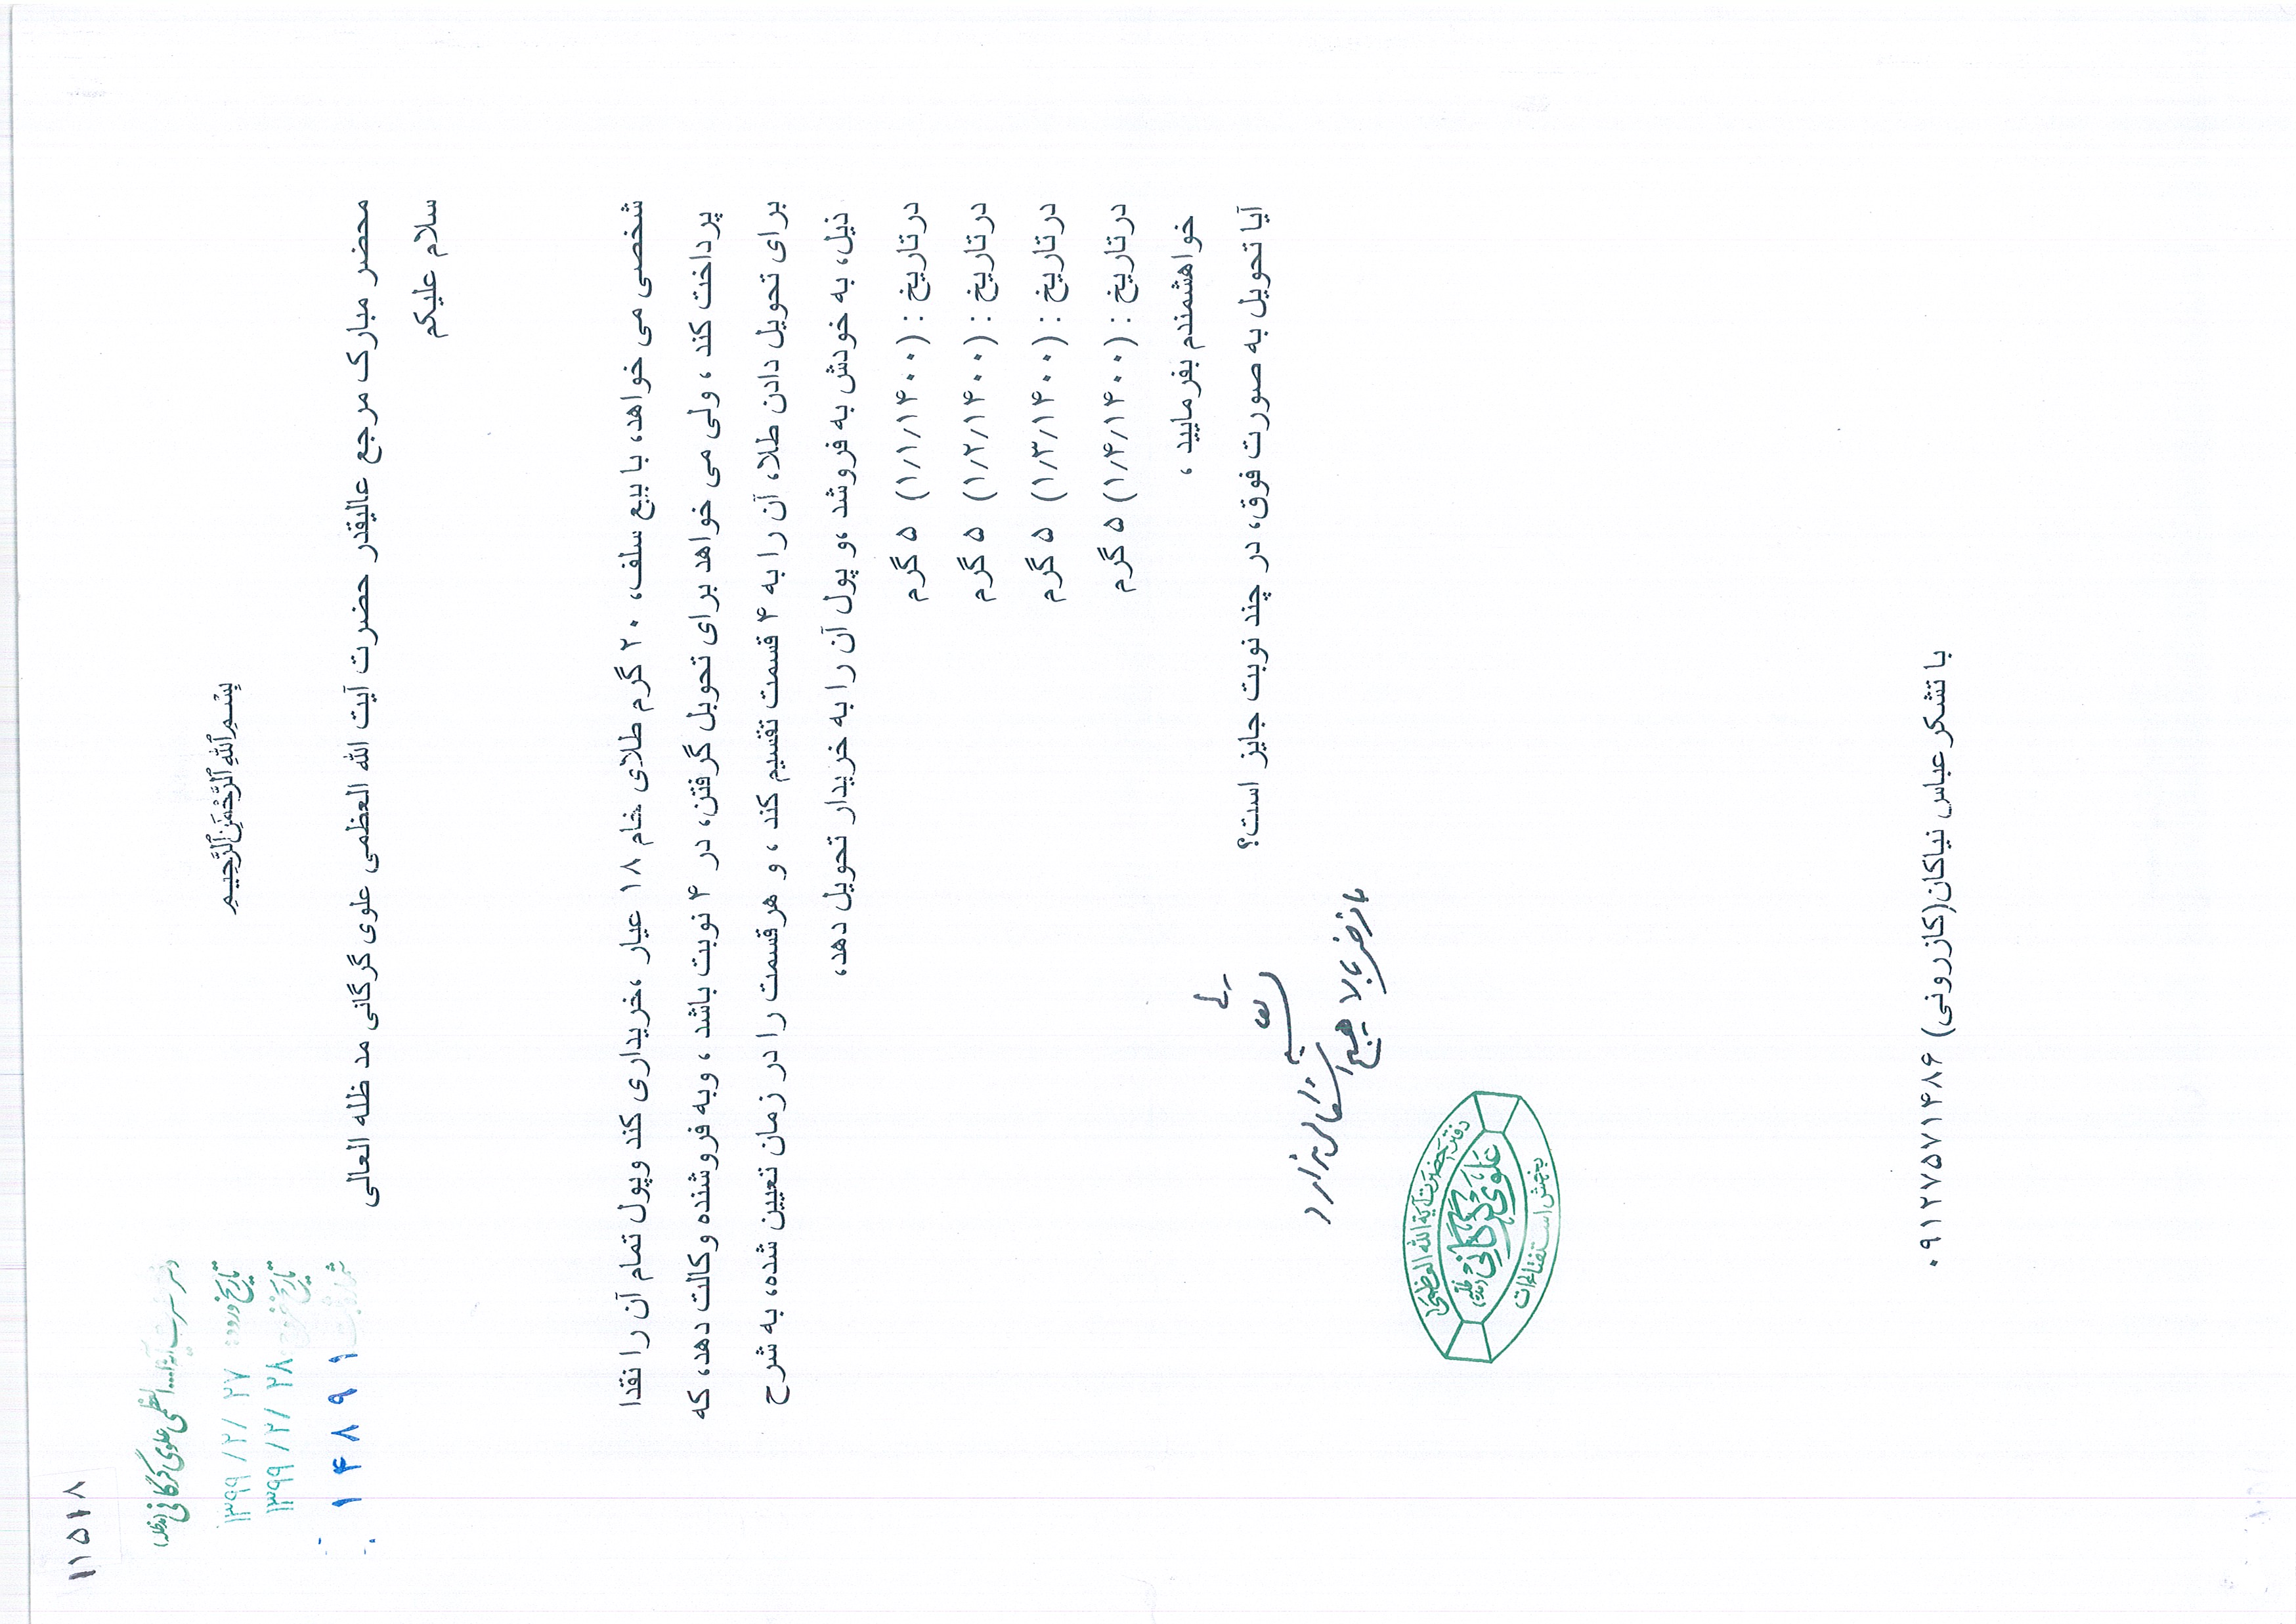 ۱۱۵۱۸
علوی گرگانی (مدظله)
تاریخ ورود: ۱۳۹۹/۲/۲۷
تاریخ خروج: ۱۳۹۹/۲/۲۸
۱۴۸۹۱
بِسْمِ اللَّهِ الرَّحْمَنِ الرَّحِيمِ
محضر مبارک مرجع عالیقدر حضرت آیت الله العظمی علوی گرگانی مد ظله العالی
سلام علیکم
شخصی می خواهد، با بیع سلف، ۲۰ گرم طلای خام ۱۸ عیار ،خریداری کند وپول تمام آن را نقدا
پرداخت کند ، ولی می خواهد برای تحویل گرفتن، در ۴ نوبت باشد ، وبه فروشنده وکالت دهد، که
برای تحویل دادن طلا، آن را به ۴ قسمت تقسیم کند ، و هرقسمت را در زمان تعیین شده، به شرح
ذیل، به خودش به فروشد ،و پول آن را به خریدار تحویل دهد،
درتاریخ : (۱/۱/۱۴۰۰) ۵ گرم
درتاریخ : (۱/۲/۱۴۰۰) ۵ گرم
درتاریخ : (۱/۳/۱۴۰۰) ۵ گرم
درتاریخ : (۱/۴/۱۴۰۰) ۵ گرم
خواهشمندم بفرمایید ،
آیا تحویل به صورت فوق، در چند نوبت جایز است؟
با فرض بالا هیچ اشکالی ندارد
دفتر حضرت آیة الله العظمی
علوی گرگانی
بخش استفتائات
با تشکر عباس نیاکان(کازرونی) ۰۹۱۲۷۵۷۱۴۸۶